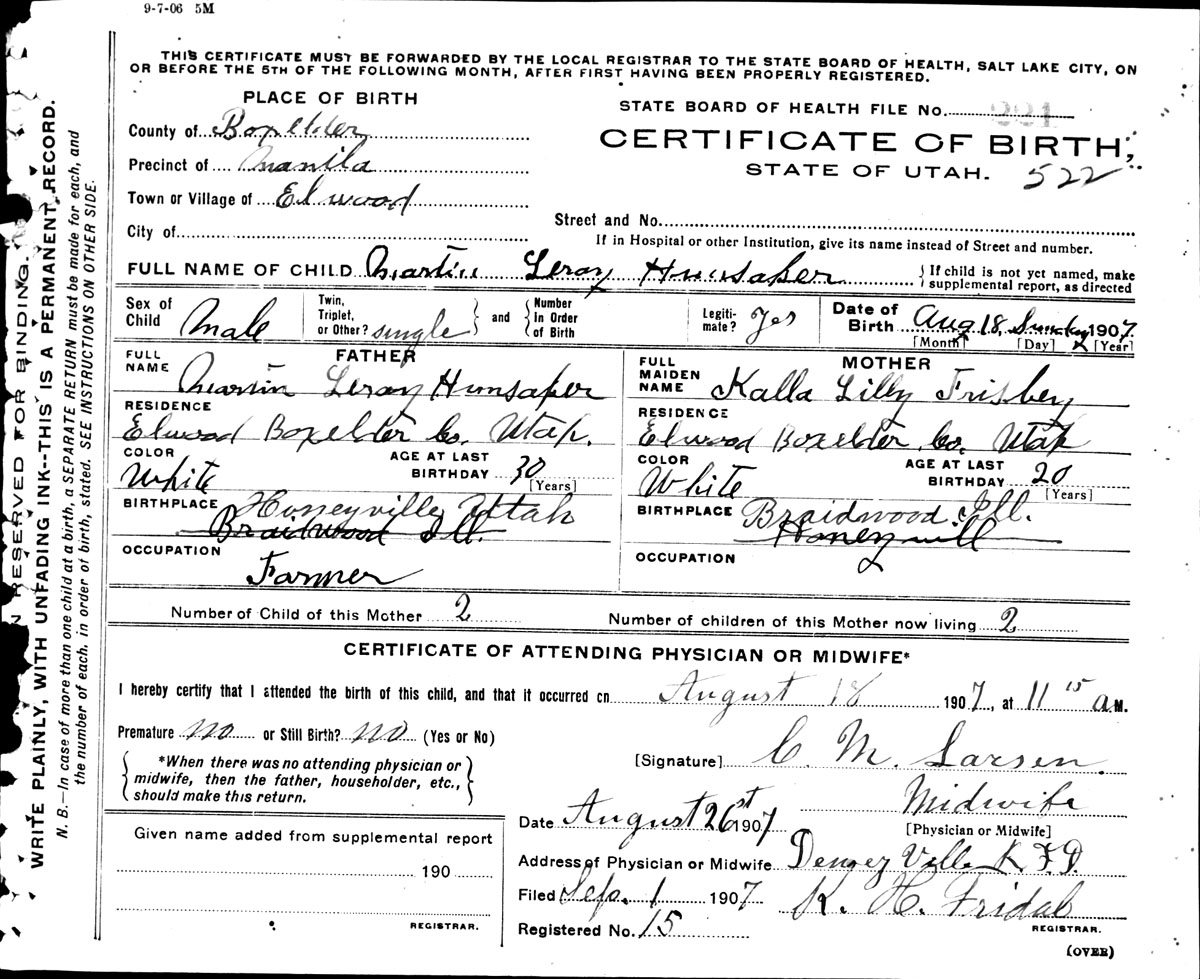 9-7-06 5M
THIS CERTIFICATE MUST BE FORWARDED BY THE LOCAL REGISTRAR TO THE STATE BOARD OF HEALTH, SALT LAKE CITY, ON
OR BEFORE THE 5TH OF THE FOLLOWING MONTH, AFTER FIRST HAVING BEEN PROPERLY REGISTERED.
PLACE OF BIRTH
STATE BOARD OF HEALTH FILE No. 221
County of Boxelder
CERTIFICATE OF BIRTH,
Precinct of Manila
STATE OF UTAH. 522
Town or Village of Elwood
Street and No.
City of
If in Hospital or other Institution, give its name instead of Street and number.
FULL NAME OF CHILD Martin Leroy Hunsaker
If child is not yet named, make
supplemental report, as directed
Sex of Child Male
Twin, Triplet, or Other? single
and
Number In Order of Birth
Legiti-mate? Yes
Date of Birth Aug 18, Sunday 1907
[Month] [Day] [Year]
FATHER
FULL NAME Martin Leroy Hunsaker
RESIDENCE
Elwood Boxelder Co. Utah.
COLOR White
AGE AT LAST BIRTHDAY 30 [Years]
BIRTHPLACE Honeyville Utah
Braidwood Ill.
OCCUPATION
Farmer
MOTHER
FULL MAIDEN NAME Kalla Lilly Frisbey
RESIDENCE
Elwood Boxelder Co. Utah
COLOR White
AGE AT LAST BIRTHDAY 20
[Years]
BIRTHPLACE Braidwood. Ill.
Honeyvill
OCCUPATION
Number of Child of this Mother 2
Number of children of this Mother now living 2
CERTIFICATE OF ATTENDING PHYSICIAN OR MIDWIFE*
I hereby certify that I attended the birth of this child, and that it occurred on August 18 1907, at 11 15 a M.
Premature no or Still Birth? no (Yes or No)
*When there was no attending physician or
midwife, then the father, householder, etc.,
should make this return.
[Signature] C. M. Larsen.
Midwife
[Physician or Midwife]
Date August 26st 1907
Address of Physician or Midwife Ville F.D.
Filed Sep. 1 1907 K. H. Fridal
REGISTRAR.
Registered No. 15
(OVER)
Given name added from supplemental report
190
REGISTRAR.
N RESERVED FOR BINDING.
WRITE PLAINLY, WITH UNFADING INK--THIS IS A PERMANENT RECORD.
N. B.—In case of more than one child at a birth, a SEPARATE RETURN must be made for each, and
the number of each. in order of birth, stated. SEE INSTRUCTIONS ON OTHER SIDE.